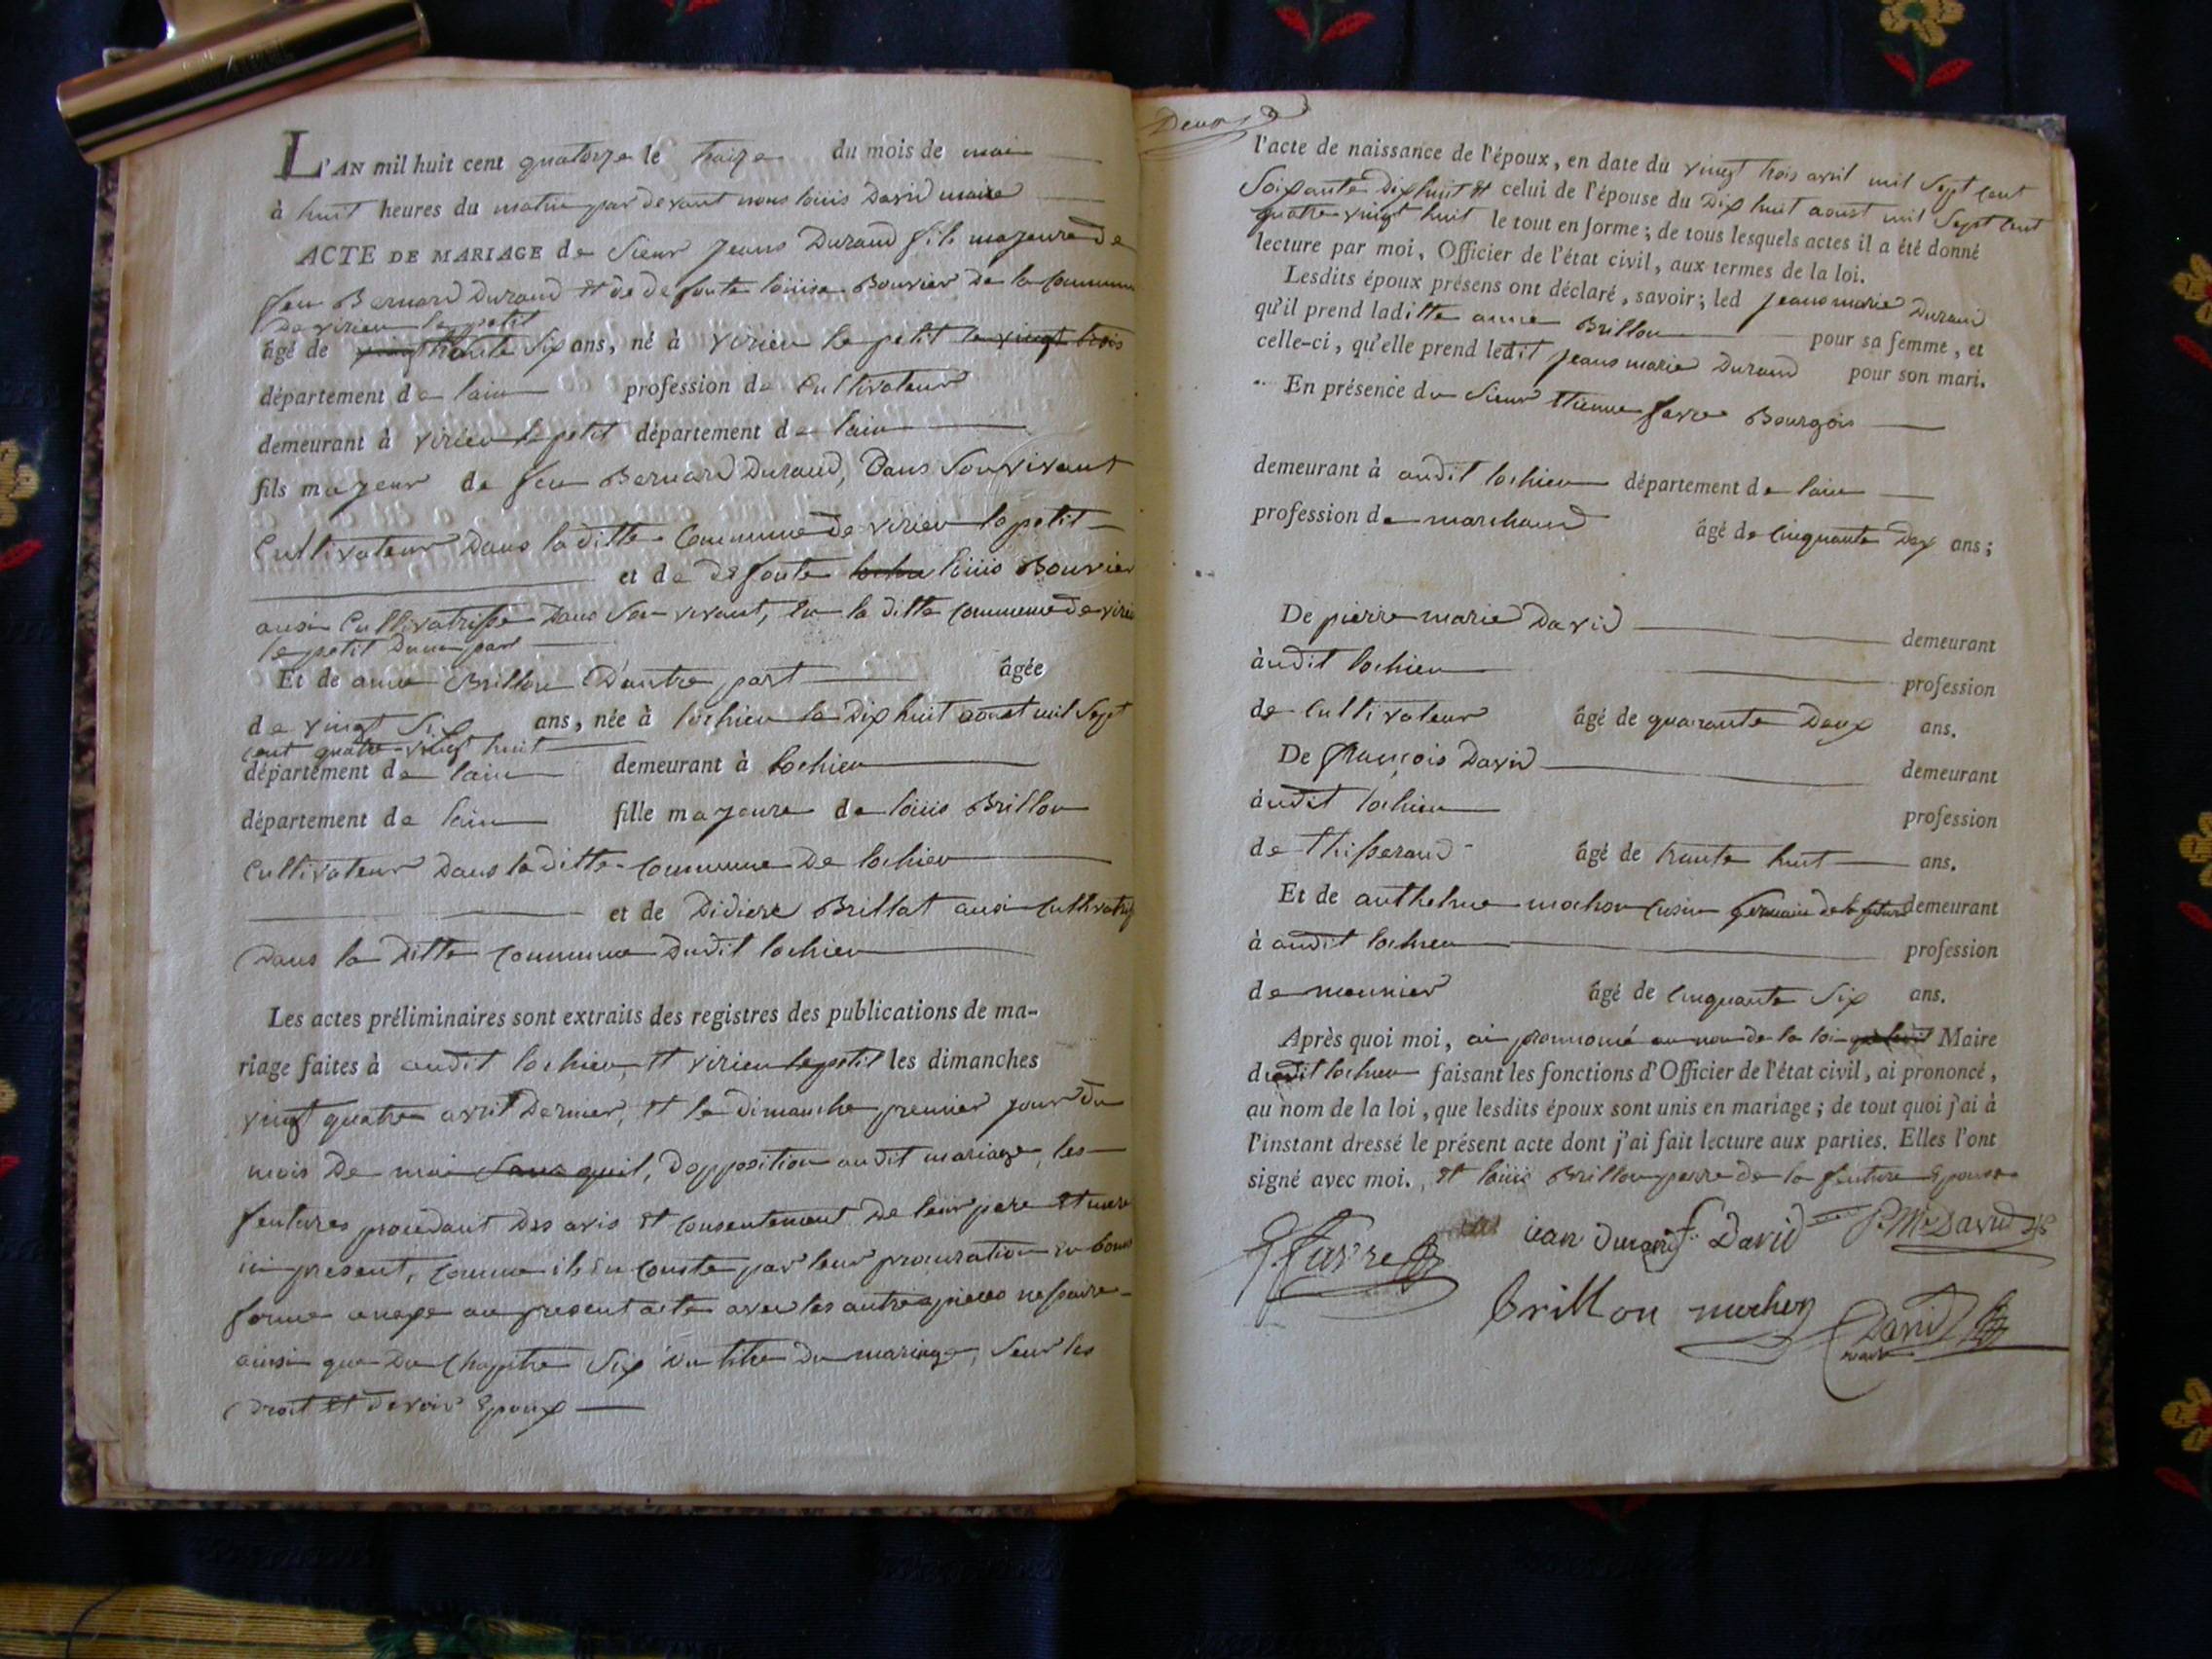 L'AN mil huit cent quatorze le traize du mois de mai
à huit heures du matin par devant nous loüis David maire
ACTE DE MARIAGE de Sieur Jeans Durand fils majeure de
feu Bernard Durand et de defeute loüise Bouvier de la Commune
de virieu le petit
âgé de trante Six ans, né à virieu le petit le vingt trois
département de lain profession de Cultivateur
demeurant à virieu le petit département de lain
fils majeur de feu Bernard Durand, Dans Son vivant
Cultivateur Dans la ditte Commune de virieu le petit
et de defeute loüis Bouvier
ausi Cultivatrisse Dans Son vivant, en la ditte Commune de virieu
le petit Dune part
Et de anne Brillon D'autre part âgée
de vingt Six ans, née à lochieu le Dix huit aoust mil Sept
cent quatre vingt huit
département de lain demeurant à lochieu
département de lain fille majeure de loüis Brillon
Cultivateur Dans la ditte Commune De lochieu
et de Didiere Brillat ausi Cultivatris
Dans la Ditte Commune Dudit lochieu
Les actes préliminaires sont extraits des registres des publications de ma-
riage faites à audit lochieu, et virieu le petit les dimanches
vingt quatre avril Dernier, et le dimanche premier jour du
mois De mai Sans quil, Dopposition audit mariage, les
feutures procedant Des avis et Consentement De leur pere et mere
ici present, Comme ils en Conste par leur procuration en bonne
forme anexe au present acte avec les autres pieces nessaire
ainsi que Du Chapitre Six du titre Du mariage, Seur les
Droit et Devoir Epoux
l'acte de naissance de l'époux, en date du vingt trois avril mil Sept Cent
Soixante Dix huit et celui de l'épouse du Dix huit aoust mil Sept Cent
quatre vingt huit le tout en forme; de tous lesquels actes il a été donné
lecture par moi, Officier de l'état civil, aux termes de la loi.
Lesdits époux présens ont déclaré, savoir; led Jeans marie Durand
qu'il prend laditte anne Brillon pour sa femme, et
celle-ci, qu'elle prend ledit Jeans marie Durand pour son mari.
En présence du Sieur Etienne favre Bourgois
demeurant à audit lochieu département de lain
profession de marchand âgé de Cinquante Dex ans;
De pierre marie David demeurant
à udit lochieu profession
de Cultivateur âgé de quarante Deux ans.
De françois David demeurant
à udit lochieu profession
de thisserand âgé de trante huit ans.
Et de anthelme mochon Cusin germain de la future demeurant
à audit lochieu profession
de meunier âgé de Cinquante Six ans.
Après quoi moi, ai prononcé au nom de la loi Maire
dudit lochieu faisant les fonctions d'Officier de l'état civil, ai prononcé,
au nom de la loi, que lesdits époux sont unis en mariage; de tout quoi j'ai à
l'instant dressé le présent acte dont j'ai fait lecture aux parties. Elles l'ont
signé avec moi., et loüis Brillon perre de la feuture Epouse
favre jean Durand f. David P. M. David
brillon mochon David
maire